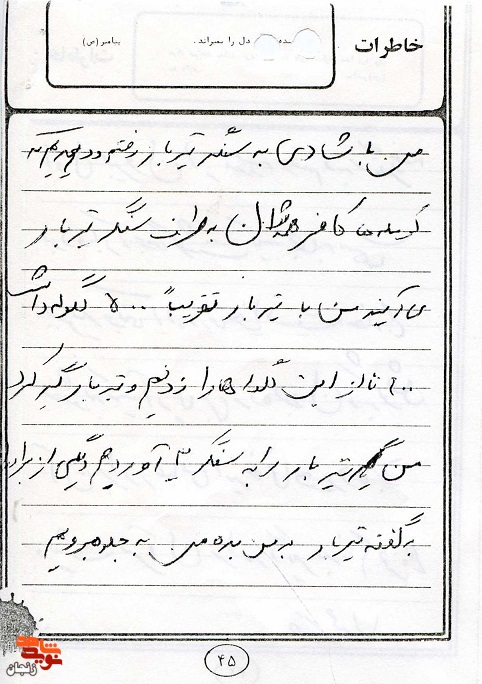 خاطرات
دل را بمیراند. پیامبر (ص)
من با شادی به سنگر تیر بار رفتم و دیدم که
گوسله ها کافر همه شان به طرف سنگر تیر بار
می آیند من با تیر بار تقریباً ۵۰۰ گلوله داشت
۲۰۰ تا از این گلوله ها را زدیم و تیر بار گیر کرد
من تیر بار را به سنگر آوردم یکی از برادر
گفته تیر بار به من بده من به جلو برویم
۴۵
نوید شاهد
زنجان